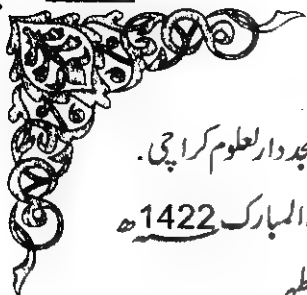 جد دارلعلوم کراچی.
المبارک 1422ھ
ظہر